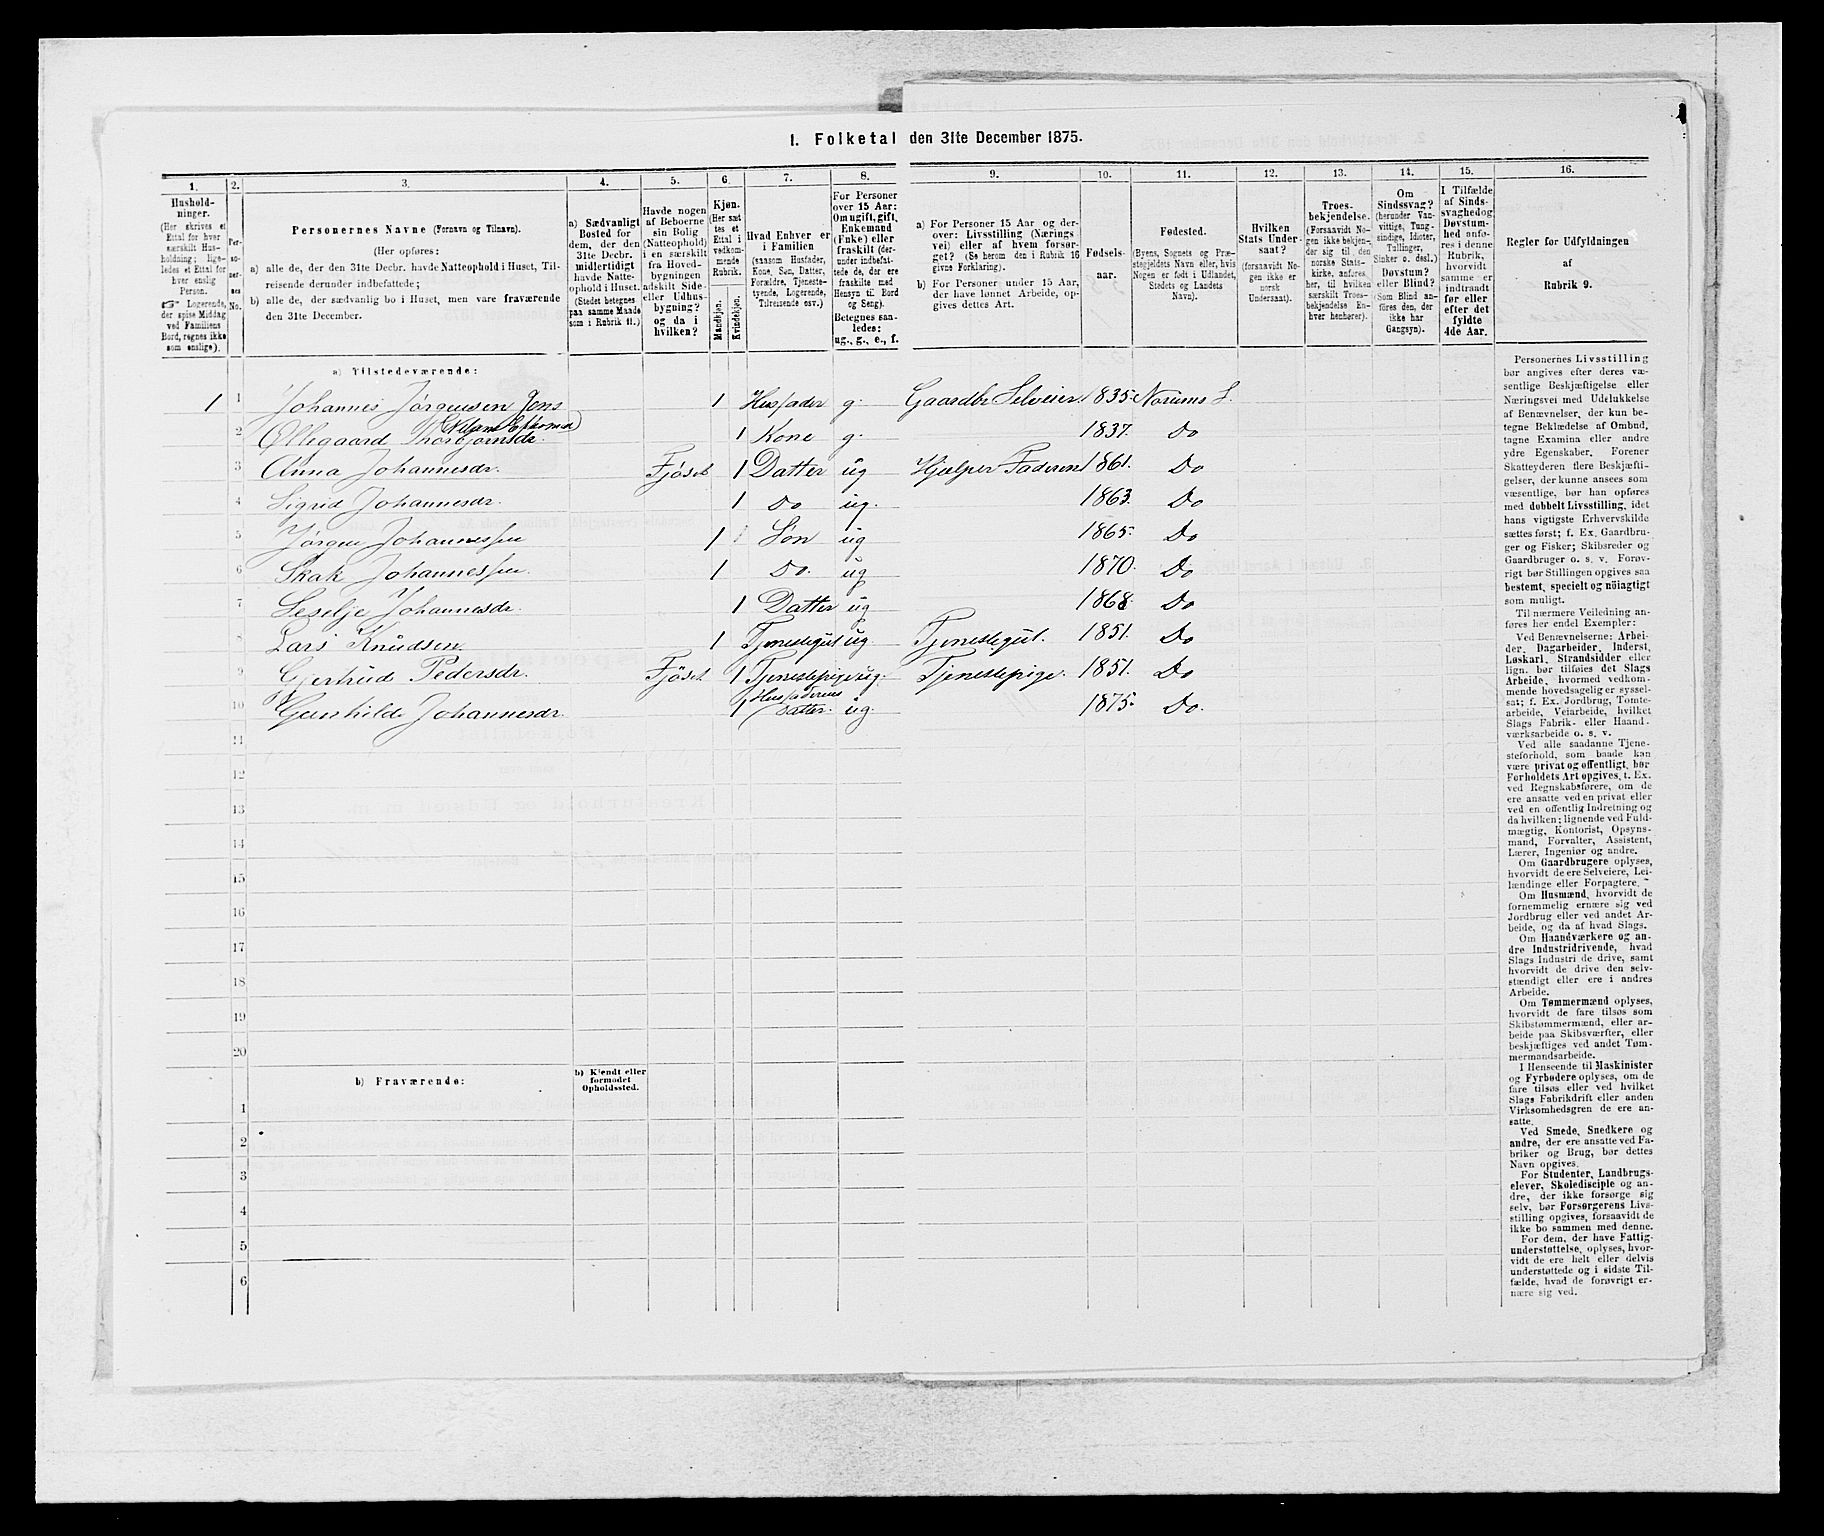 1. Folketal den 31te December 1875.
1. 2. 3. 4. 5. 6. 7. 8. 9. 10. 11. 12. 13. 14. 15. 16.
Hushold-
ninger.
(Her skrives et
Ettal for hver
særskilt Hus-
holdning; lige-
ledes et Ettal for
hver enslig
Person.
☞ Logerende,
der spise Middag
ved Familiens
Bord, regnes ikke
som enslige).
Per-
so-
ner-
nes
No.
Personernes Navne (Fornavn og Tilnavn).
(Her opføres:
a) alle de, der den 31te Decbr. havde Natteophold i Huset, Til-
reisende derunder indbefattede;
b) alle de, der sædvanlig bo i Huset, men vare fraværende
den 31te December.
a) Sædvanligt
Bosted for
dem, der den
31te Decbr.
midlertidigt
havde Natte-
ophold i Huset.
(Stedet betegnes
paa samme Maade
som i Rubrik 11.)
Havde nogen
af Beboerne
sin Bolig
(Natteophold)
i en særskilt
fra Hoved-
bygningen
adskilt Side-
eller Udhus-
bygning?
og da i
hvilken?
Kjøn.
(Her sæt
tes et
Ettal i
vedkom-
mende
Rubrik.
Mandkjøn.
Kvindekjøn.
Hvad Enhver er
i Familien
(saasom Husfader,
Kone, Søn, Datter,
Forældre, Tjeneste-
tyende, Logerende,
Tilreisende osv.)
For Personer
over 15 Aar:
Om ugift, gift,
Enkemand
(Enke) eller
fraskilt (der-
under indbefat-
tede de, der ere
fraskilte med
Hensyn til Bord
og Seng).
Betegnes saa-
ledes:
ug., g., e., f.
a) For Personer 15 Aar og der-
over: Livsstilling (Nærings
vei) eller af hvem forsør-
get? (Se herom den i Rubrik 16
givne Forklaring).
b) For Personer under 15 Aar,
der have lønnet Arbeide, op-
gives dettes Art.
Fødsels-
aar.
Fødested.
(Byens, Sognets og Præ-
stegjeldets Navn eller, hvis
Nogen er født i Udlandet,
Stedets og Landets
Navn).
Hvilken
Stats Under-
saat?
(forsaavidt No-
gen ikke er
norsk
Undersaat).
Troes-
bekjendelse.
(Forsaavidt No-
gen ikke bekjen-
der sig til den
norske Stats-
kirke, anføres
her, til hvilken
særskilt Troes-
bekjendelse En-
hver henhører).
Om
Sindssvag?
(herunder Van-
vittige, Tung-
sindige, Idioter,
Tullinger,
Sinker o. desl.)
Døvstum?
eller Blind?
(Som Blind an-
føres den, der
ikke har
Gangsyn).
I Tilfælde
af Sinds-
svaghed og
Døvstum-
hed anfø-
res i denne
Rubrik,
hvorvidt
samme er
indtraadt
før eller
efter det
fyldte
4de Aar.
Regler for Udfyldningen
af
Rubrik 9.
a) Tilstedeværende:
1 1 Johannes Jørgensen Jens 1 Husfader g. Gaardbr Selveier. 1835. Norums S.
2 Ollegaard Thorbjørnsdr. 1 Kone g. 1837. Do
3 Anna Johannesdr. Fjöset 1 Datter ug Hjælper Faderen 1861. Do
4 Sigrid Johannesdr. 1 Do ug. 1863. Do
5 Jørgen Johannessen 1 Søn ug 1865. Do
6 Skak Johannessen 1 Do. ug 1870. Do
7 Seselje Johannesdr. 1 Datter ug 1868. Do
8 Lars Knudsen. 1 Tjenestegut ug. Tjenestegut. 1851. Do
9 Gjertrud Pedersdr. Fjöset 1 Tjenestepige ug. Tjenestepige. 1851. Do
10 Gunhilde Johannesdr. 1 Husfaderens Datter. ug. 1875. Do.
11
12
13
14
15
16
17
18
19
20
b) Fraværende:
b) Kjendt eller
formodet
Opholdssted.
1
2
3
4
5
6
Personernes Livsstilling
bør angives efter deres væ-
sentlige Beskjæftigelse eller
Næringsvei med Udelukkelse
af Benævnelser, der kun be-
tegne Beklædelse af Ombud,
tagne Examina eller andre
ydre Egenskaber. Forener
Skatteyderen flere Beskjæfti-
gelser, der kunne ansees som
væsentlige, bør han opføres
med dobbelt Livsstilling, idet
hans vigtigste Erhvervskilde
sættes først; f. Ex. Gaardbru-
ger og Fisker; Skibsreder og
Gaardbruger o. s. v. Forøv-
rigt bør Stillingen opgives saa
bestemt, specielt og nöiagtigt
som muligt.
Til nærmere Veiledning an-
føres her endel Exempler:
Ved Benævnelserne: Arbei-
der, Dagarbeider, Inderst,
Løskarl, Strandsidder eller
lign. bør tilføies det Slags
Arbeide, hvormed vedkom-
mende hovedsagelig er syssel-
sat; f. Ex. Jordbrug, Tomte-
arbeide, Veiarbeide, hvilket
Slags Fabrik- eller Haand-
værksarbeide o. s. v.
Ved alle saadanne Tjene-
steforhold, som baade kan
være privat og offentligt, bør
Forholdets Art opgives, t. Ex.
ved Regnskabsførere, om de
ere ansatte ved en privat eller
ved en offentlig Indretning og
da hvilken; lignende ved Fuld-
mægtig, Kontorist, Opsyns-
mand, Forvalter, Assistent,
Lærer, Ingeniør og andre.
Om Gaardbrugere oplyses,
hvorvidt de ere Selveiere, Lei-
lændinge eller Forpagtere.
Om Husmænd, hvorvidt de
fornemmelig ernære sig ved
Jordbrug eller ved andet Ar-
beide, og da af hvad Slags.
Om Haandværkere og an-
dre Industridrivende, hvad
Slags Industri de drive, samt
hvorvidt de drive den selv-
stændigt eller ere i andres
Arbeide.
Om Tømmermænd oplyses,
hvorvidt de fare tilsøs som
Skibstømmermænd, eller ar-
beide paa Skibsværfter, eller
beskjæftiges ved andet Tøm-
mermandsarbeide.
I Henseende til Maskinister
og Fyrbødere oplyses, om de
fare tilsøs eller ved hvilket
Slags Fabrikdrift eller anden
Virksomhedsgren de ere an-
satte.
Ved Smede, Snedkere og
andre, der ere ansatte ved Fa-
briker og Brug, bør dettes
Navn opgives.
For Studenter, Landbrugs-
elever, Skoledisciple og an-
dre, der ikke forsørge sig
selv, bør Forsørgerens Livs-
stilling opgives, forsaavidt de
ikke bo sammen med denne.
For dem, der have Fattig-
understøttelse, oplyses, hvor-
vidt de ere helt eller delvis
understøttede og i sidste Til-
fælde, hvad de forøvrigt er-
nære sig ved.